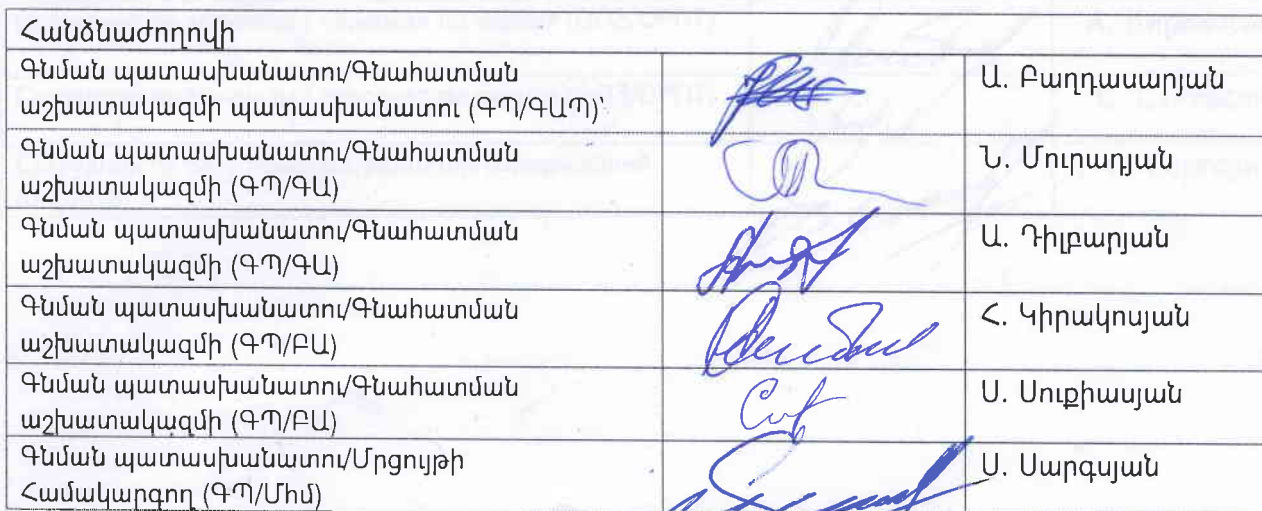 Հանձնաժողովի
Գնման պատասխանատու/Գնահատման
աշխատակազմի պատասխանատու (ԳՊ/ԳԱՊ)՝
Ա. Բաղդասարյան
Գնման պատասխանատու/Գնահատման
աշխատակազմի (ԳՊ/ԳԱ)
Ն. Մուրադյան
Գնման պատասխանատու/Գնահատման
աշխատակազմի (ԳՊ/ԳԱ)
Ա. Դիլբարյան
Գնման պատասխանատու/Գնահատման
աշխատակազմի (ԳՊ/ԲԱ)
Հ. Կիրակոսյան
Գնման պատասխանատու/Գնահատման
աշխատակազմի (ԳՊ/ԲԱ)
Ս. Սուքիասյան
Գնման պատասխանատու/Մրցույթի
Համակարգող (ԳՊ/Մհմ)
Ս. Սարգսյան